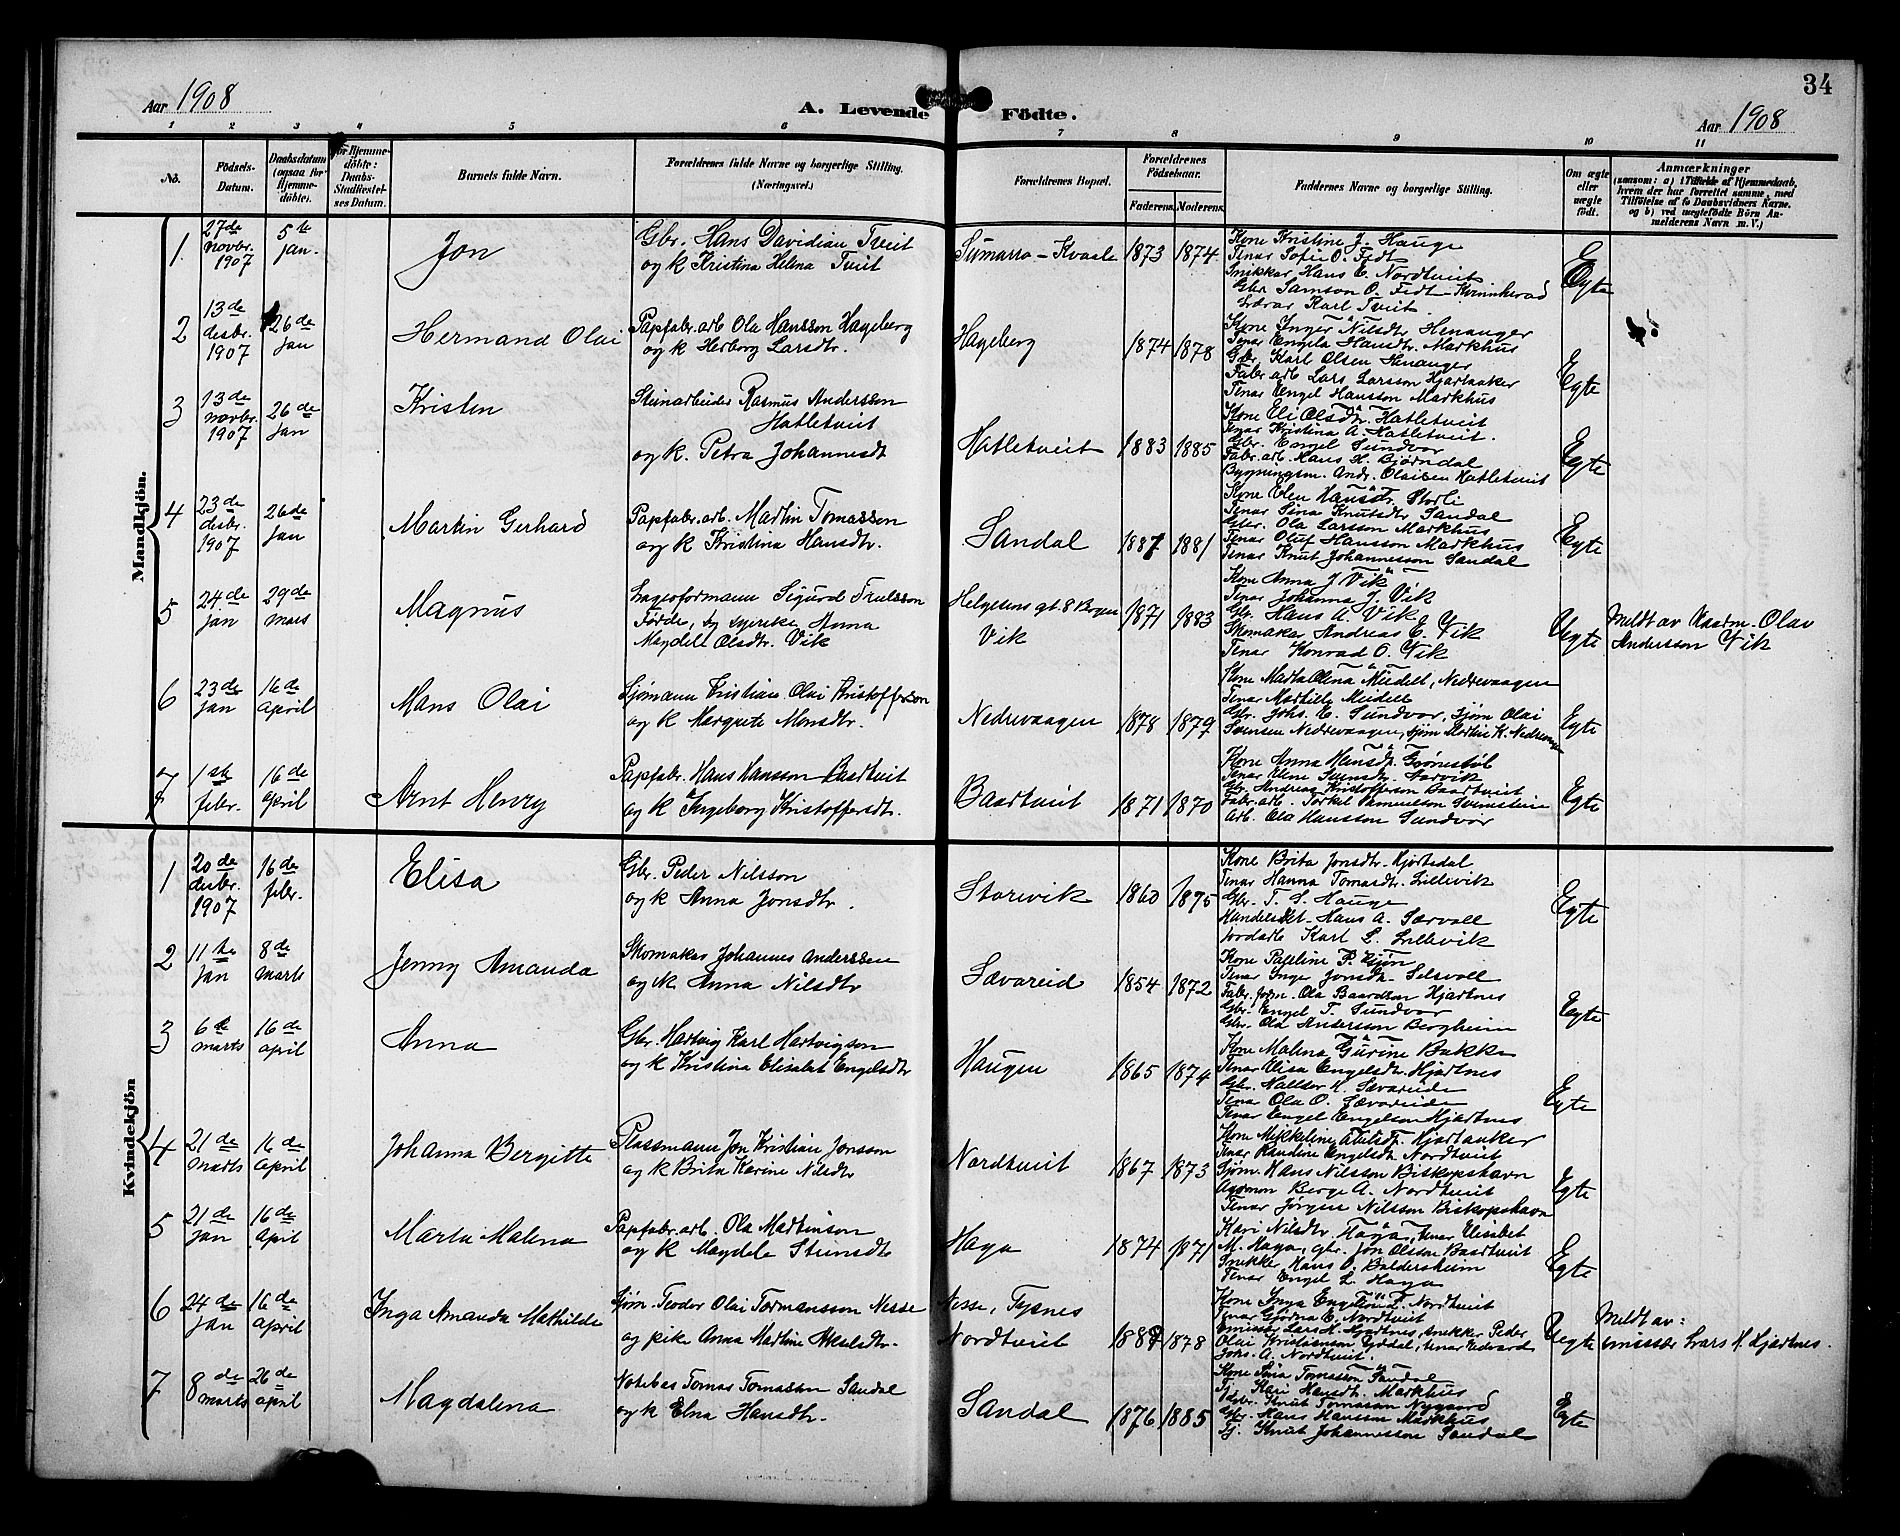 34
Aar 1908
A. Levende Födte.
Aar 1908
1 2 3 4 5 6 7 8 9 10 11
No.
Födsels-Datum.
Daabsdatum (ogsaa for Hjemme-döbte).
For Hjemme-döbte: Daabs-Stadfæstel-ses Datum.
Barnets fulde Navn.
Forældrenes fulde Navne og borgerlige Stilling. (Næringsvei.)
Forældrenes Bopæl.
Forældrenes Födselsaar.
Faderens. Moderens.
Faddernes Navne og borgerlige Stilling.
Om ægte eller uægte födt.
Anmærkninger
(saasom: a) i Tilfælde af Hjemmedaab, hvem der har forrettet samme, med Tilföielse af to Daabsvidners Navne. og b) ved uægtefödte Börn An-melderens Navn m. V.)
Mandkjön.
1 27de novbr. 1907 5te jan. Jon
Gbr. Hans Davidian Tveit
og k Kristina Helena Tveit
Sumarro - Kvaale 1873 1874
Kone Kristine J. Hauge
Tenar Sofie O. Fedt
Snikkar Hans E. Nordtveit
Gbr Samson O. Fedt Kvinnherad
Lærar Karl Tveit.
Egte
2 13de desbr. 1907 26de Jan Hermand Olai
Papfabr. arb Ola Hansson Hageberg
og k Herborg Larsdtr.
Hageberg 1874 1878
Kone Inger Nilsdtr Henanger
Tenar Engela Hansdtr. Markhus
Gbr Karl Olsen Henanger
Fabr arb Lars Larsson Hjartaaker
Tenar Engel Hansson Markhus
Egte
3 13de novbr. 1907 26de Jan Kristen
Steinarbeider Rasmus Andersson
Hatletveit
og k. Petra Johannesdt
Hatletveit 1883 1885
Kone Eli Olsdtr. Hatletveit
Tenar Kristina A. Hatletveit.
Gbr. Engel Sundvor
Fabr. arb. Hans H. Bjørndal
Bygningsm. Andr. Olaisen Hatletveit
Egte
4 23de desbr. 1907 26de Jan Martin Gerhard
Papfabr. arb. Martin Tomasson
og k Kristina Hansdtr.
Sandal 1881
Kone Elen Hansdtr. Storli
Tenar Sina Knutsdtr Sandal
Gbr. Ola Larsson Markhus
Tenar Oluf Hansson Markhus
Tenar Knut Johannesson Sandal
Egte
5 24de Jan 29de mars Magnus
Lagerformann Sigurd Trulsson
Førde, og syerike Anna
Magdele Olsdtr. Vik
Helgesens gt. 8 Bergen
Vik 1871 1883
Kone Anna J Vik
Tenar Johanna J. Vik
Gbr. Hans A. Vik
Skomaka Andreas E. Vik
Tenar Konrad O. Vik
Uegte
Meldt av Olav
Andersson Vik
6 23de Jan 16de April Hans Olai
Sjømann Kristian Olai Kristofferson
og k Margrete Monsdtr.
Nedrevaagen 1878 1879
Kone Marta Olena Meidell, Nedrevaagen
Tenar Martille Meidell
Gbr. Johs. E. Sundvor, Sjøm Olai
Svensen Nedrevaagen, sjøm Martin K. Nedrevaagen
Egte
7 1ste febr. 16de April Arnt Henry
Papfabr. Hans Hansson Baardtveit
og k Ingeborg Kristoffersdtr.
Baardtveit 1871 1870
Kone Anna Hansdtr. Grønestøl
Tenar Elene Svensdtr. Sarvik
Gbr. Andreas Kristofferson Baardtveit
Fabr. arb. Torkel Samuelson Svinstein
Arb. Ola Hansson Sundvor
Egte
Kvindekjön
1 20de desbr. 1907 16de febr. Elisa
Gbr. Peder Nilsson
og k Anna Jonsdtr.
Storevik 1860 1875
Kone Brita Jonsdtr. Hjortedal
Tenar Hanna Tomasdtr. Lillevik
Gbr. T. S. Hauge
Handelsbet. Hans A. Særvoll
Jordarb Karl L. Lillevik
Egte
2 11te Jan 8de marts Jenny Amanda
Skomakar Johannes Anderssen
og k Anna Nilsdtr
Sævareid 1854 1872
Kone Pauline P. Gjøn
Tenar Inger Jonsdtr. Selsvoll
Fabr. form. Ola Baardson Hjartnes
Gbr. Engel T. Sundvor
Gbr. Ola Andersson Bergheim
Egte
3 6te marts 16de april Anna
Gbr. Hartvig Karl Hartvigson
og k Kristina Elisabet Engelsdtr
Haugen 1865 1874
Kone Malena Gurine Bakke
Tenar Elisa Engelsdtr. Hjartnes
Gbr. Halldor K. Sævareide
Tenar Ola O. Sævareide
Tenar Engel Engelson Hjartnes
Egte
4 21de marts 16de April Johanna Bergitte
Plassmann Jon Kristian Jonsson
og k Brita Karine Nilsdtr
Nordtveit 1867 1873
Kone Mikkeline Hjartaaker
Tenar Randine Engelsdtr. Nordtveit
Sjøm. Hans Nilsson Biskopshavn
Berge A. Nordtveit
Tenar Jørgen Nilsson Biskopshavn
Egte
5 21de Jan 16de April Marta Malena
Papfabr. arb. Ola Martinson
og k Magdela Steinsdtr
Haga 1874 1871
Kari Nilsdtr Haga, tenar Elisabet
M. Haga, gbr. Jon Olsson Baardtveit
Snikker Hans O. Baldersheim
Tenar Engel L. Haga
Egte
6 24de Jan 16de April Inga Amanda Mathilde
Sjøm. Teodor Olai Tormansson Nesse
og pike Anna Martine Akseldtr.
Nesse, Tysnes
Nordtveit 1878
Kone Inga Engelsdtr. Nordtveit
Tenar Gjørdna E. Nordtveit
Emissær Lars H. Hjartnes, snekker Peder
Olai Kristianson Tyddal, tenar Edvard
Johs. A. Nordtveit.
Uegte
Meldt av:
emissær Lars H. Hjartnes.
7 8de marts 26de april Magdalena
Notebas Tomas Tomasson Sandal
og k Elna Hansdtr.
Sandal 1876 1885
Kone Sina Tomasson Sandal
Tj. Kari Hansdtr. Markhus
Gbr. Knut Tomasson Nygaard
Gbr. Hans Hansson Markhus
Tj. Knut Johannesson Sandal
Egte